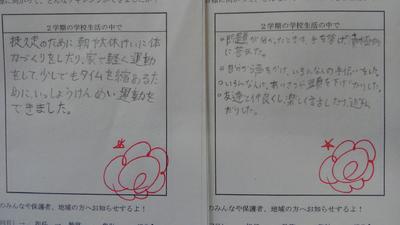 2学期の学校生活の中で
持久走のために朝や大休けいに体
力づくりをしたり、家で軽く運動
をして、少しでもタイムを縮めるた
めに、いっしょうけんめい運動を
できました。
のみんなや保護者、地域の方へお知らせするよ!
2学期の学校生活の中で
問題が分かったときは、手を挙げ、
に答えた。
自分から声をかけ、いろんな人の手伝いをした。
いろんな人に、あいさつ
友達と仲良くし、楽しく
がりした。
のみんなや保護者、地域の方へお知らせするよ!